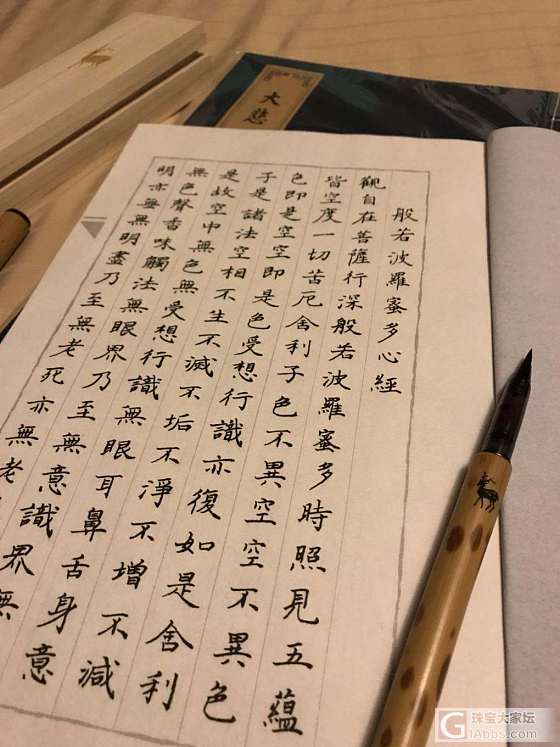 大悲
般若波羅蜜多心經
觀自在菩薩行深般若波羅蜜多時照見五蘊
皆空度一切苦厄舍利子色不異空空不異色
色即是空空即是色受想行識亦復如是舍利
子是諸法空相不生不滅不垢不淨不增不減
是故空中無色無受想行識無眼耳鼻舌身意
無色聲香味觸法無眼界乃至無意識界無
明亦無無明盡乃至無老死亦無老
珠宝大家坛
G1Abbs.com